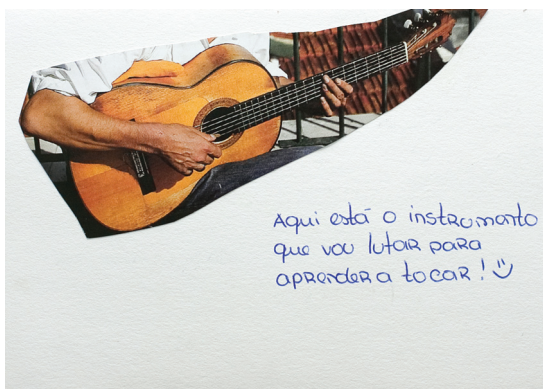 Aqui está o instrumento
que vou lutar para
aprender a tocar! :)